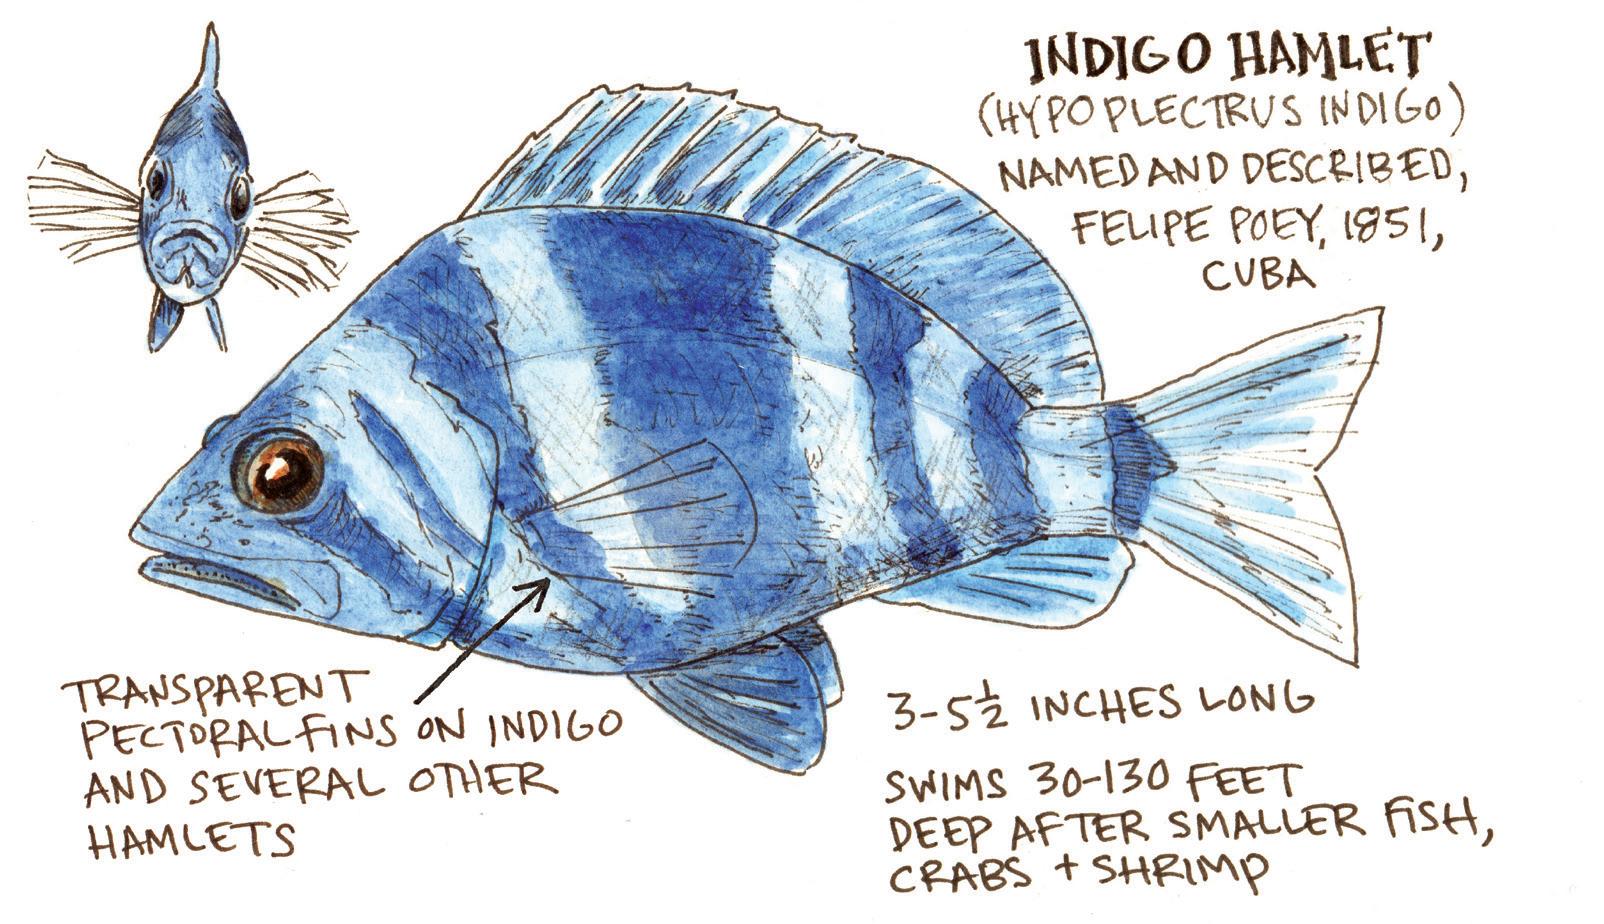 INDIGO HAMLET
(HYPOPLECTRUS INDIGO)
NAMED AND DESCRIBED,
FELIPE POEY, 1851,
CUBA
TRANSPARENT
PECTORAL FINS ON INDIGO
AND SEVERAL OTHER
HAMLETS
3-5½ INCHES LONG
SWIMS 30-130 FEET
DEEP AFTER SMALLER FISH,
CRABS + SHRIMP